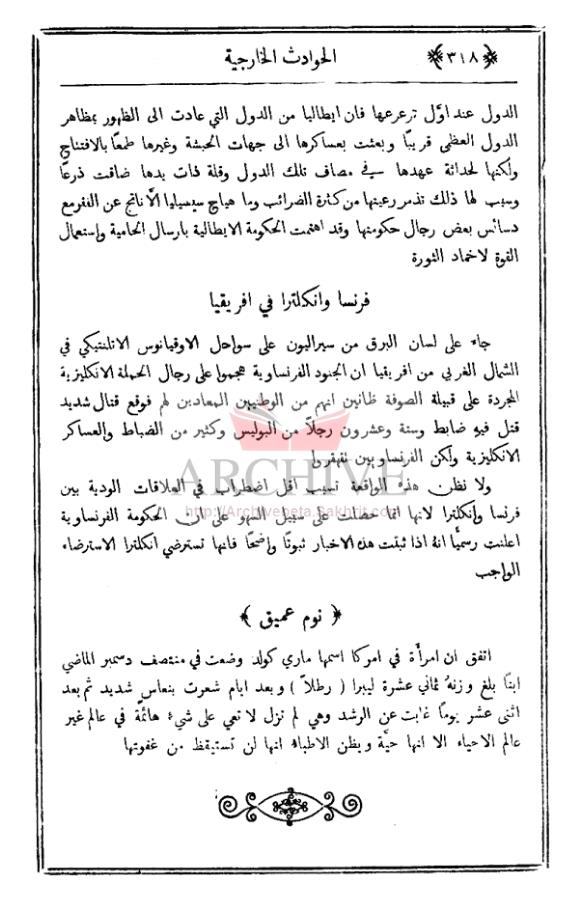 ﴿٣١٨﴾ الحوادث الخارجية
الدول عند اوّل ترعرعها فان ايطاليا من الدول التي عادت الى الظهور بمظاهر
الدول العظمى قريبًا وبعثت بعساكرها الى جهات الحبشة وغيرها طمعًا بالافتتاح
ولكنها لحداثة عهدها في مصاف تلك الدول وقلة ذات يدها ضاقت ذرعًا
وسبب لها ذلك تذمر رعيتها من كثرة الضرائب وما هياج سيسيليا الّا ناتج عن الفقر مع
دسائس بعض رجال حكومتها وقد اهتمت الحكومة الايطالية بارسال الحامية واستعمال
القوة لاخماد الثورة
فرنسا وانكلترا في افريقيا
جاء على لسان البرق من سيراليون على سواحل الاوقيانوس الاتلنتيكي في
الشمال الغربي من افريقيا ان الجنود الفرنساوية هجموا على رجال الحملة الانكليزية
المجردة على قبيلة الصوفة ظانين انهم من الوطنيين المعادين لم فوقع قتال شديد
قتل فيهِ ضابط وستة وعشرون رجلاً من البوليس وكثير من الضباط والعساكر
الانكليزية ولكن الفرنساويين تقهقروا
ولا نظن هذه الواقعة تسبب اقل اضطراب في العلاقات الودية بين
فرنسا وانكلترا لانها انما حصلت على سبيل السهو على ان الحكومة الفرنساوية
اعلنت رسميًا انهُ اذا ثبتت هذه الاخبار ثبوتًا واضحًا فانها تسترضي انكلترا الاسترضاء
الواجب
﴿ نوم عميق ﴾
اتفق ان امرأة في امركا اسمها ماري كولد وضعت في منتصف دسمبر الماضي
ابنًا بلغ وزنهُ ثماني عشرة ليبرا ( رطلاً ) وبعد ايام شعرت بنعاس شديد ثم بعد
اثنى عشر يومًا غابت عن الرشد وهي لم تزل لا تعي على شيء هائمة في عالم غير
عالم الاحياء الا انها حيَّة ويظن الاطباء انها لن تستيقظ من غفوتها
ARCHIVE
http://Archivebeta.Sakhrit.com